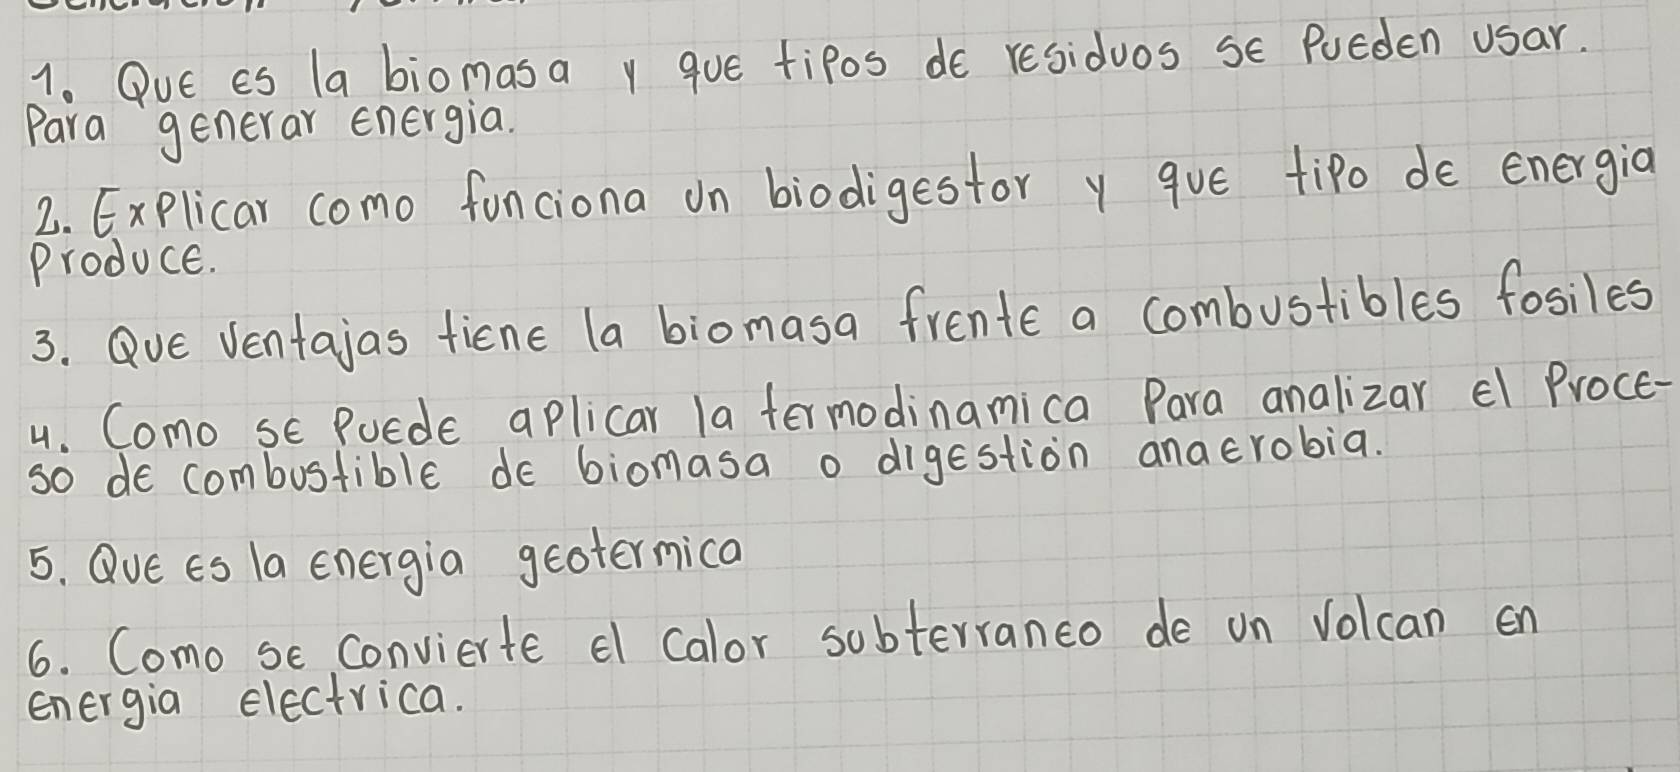 1. Que es la biomasa y que tipos de residuos se pueden usar.
Para generar energia.
2. Explicar como funciona un biodigestor y que tipo de energia
produce.
3. Que ventajas tiene la biomasa frente a combustibles fosiles
4. Como se puede aplicar la termodinamica para analizar el proce-
so de combustible de biomasa o digestión anaerobia.
5. Que es la energia geotermica
6. Como se convierte el calor subterraneo de un volcan en
energia electrica.